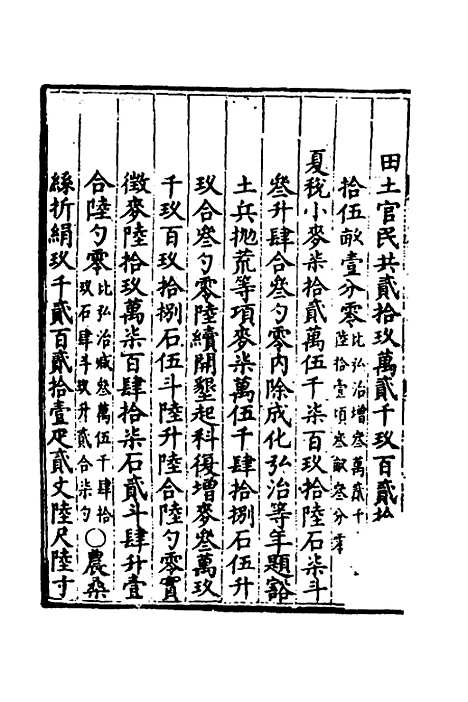 田土官民共貳拾玖萬貳千玖百貳拾
拾伍畝壹分零比弘治增叁萬貳千陸拾壹頃叁畝叁分零
夏稅小麥柒拾貳萬伍千柒百玖拾陸石柒斗
叁升肆合叁勺零內除成化弘治等年題豁
土兵抛荒等項麥柒萬伍千肆拾捌石伍升
玖合叁勺零陸續開墾起科復增麥叁萬玖
千玖百玖拾捌石伍斗陸升陸合陸勺零實
徵麥陸拾玖萬柒百肆拾柒石貳斗肆升壹
合陸勺零比弘治減叁萬伍千肆拾玖石肆斗玖升貳合柒勺○農桑
絲折絹玖千貳百貳拾壹疋貳丈陸尺陸寸